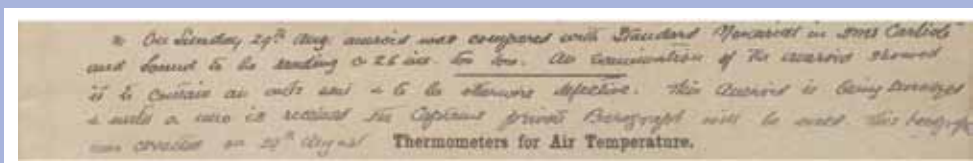 On Sunday 29th Aug. aneroid was compared with Standard Mercurial in HMS Carlisle
and found to be reading 0.26 ins. too low. An examination of the aneroid showed
it to contain an and to be otherwise defective. This Aneroid is being surveyed
& until a new is received the Captains private Barograph will be used. This barograph
was corrected on 29th August Thermometers for Air Temperature.